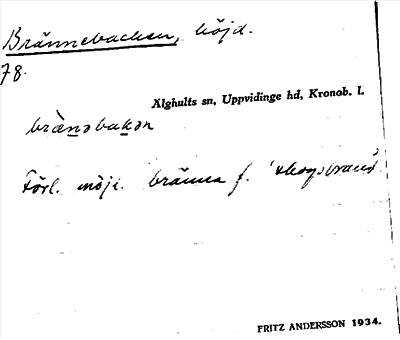 Brännebacken, höjd.
78.
Älghults sn, Uppvidinge hd, Kronob. l.
brænəbakən
Förl. möjl. bränna f. 'skogsbrand'.
FRITZ ANDERSSON 1934.